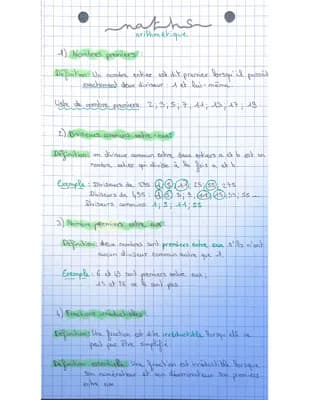 maths
arithmétique
1) Nombres premiers
Définition: Un nombre entier est dit premier lorsqu'il possède
exactement deux diviseurs : 1 et lui-même
Liste de nombre premiers: 2, 3, 5, 7, 11, 13, 17, 19
2) Diviseurs communs entre eux
Définition: un diviseur commun entre deux entiers a et b est un
nombre entier qui divise à la fois a et b.
Exemple: Diviseurs de
Diviseurs de 495 : 1, 3, 5, 9, 11, 15, 33, 55 ...
Diviseurs communs 1, 5, 11, 55
3) Nombre premiers entre eux
Définition: deux nombres sont premiers entre eux s'ils n'ont
aucun diviseur commun autre que 1.
Exemple: 6 et sont premiers entre eux;
15 et ne le sont pas
4) Fractions irréductibles
Définition: Une fraction est dite irréductible lorsqu'elle ne
peut pas être simplifié
Définition essentielle: Une fraction est irréductible lorsque
son numérateur et son dénominateur son premiers
entre eux